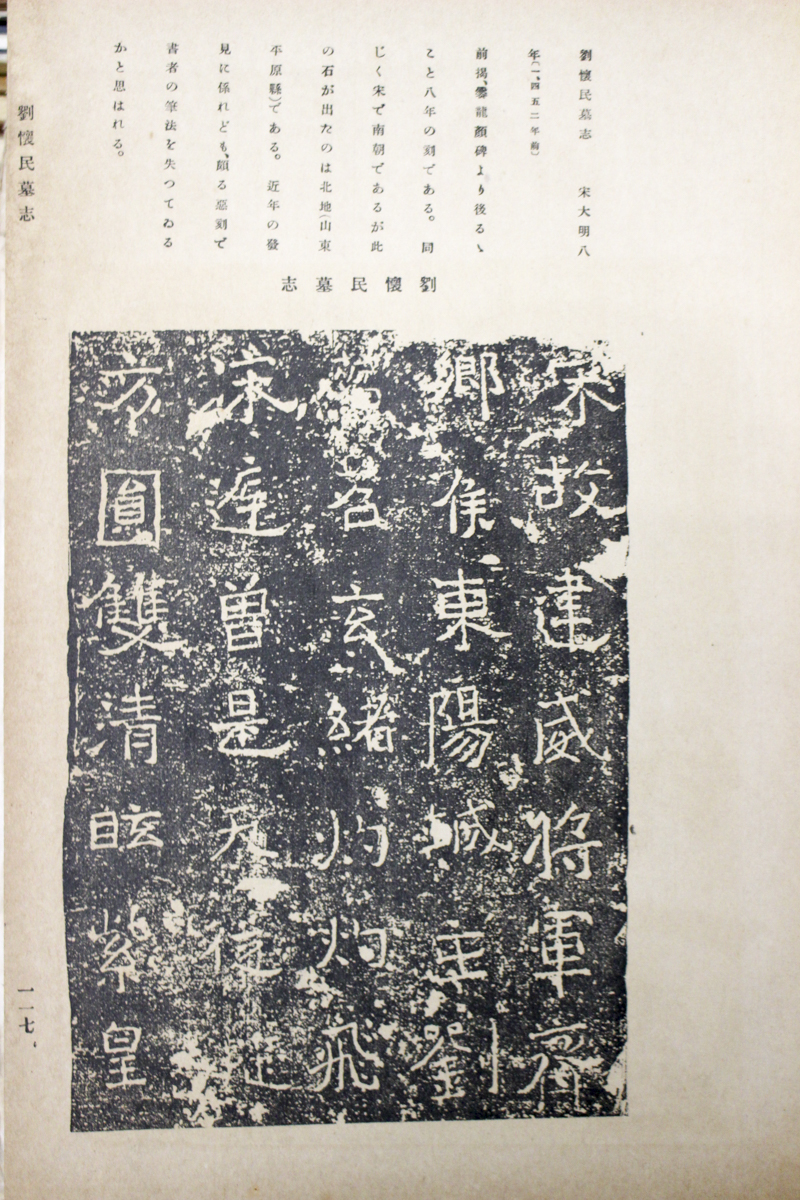 劉懷民墓志 宋大明八
年(一、四五二年前)
前揭、爨龍顏碑より後るゝ
こと八年の刻である。同
じく宋で南朝であるが此
の石が出たのは北地(山東
平原縣)である。近年の發
見に係れども、頗る惡刻で
書者の筆法を失つてゐる
かと思はれる。
劉懷民墓志
宋故建威將軍齊
鄉侯東陽城主劉
苕苕玄緒灼灼飛
曾是天
方圓雙清眩紫皇
劉懷民墓志
一一七